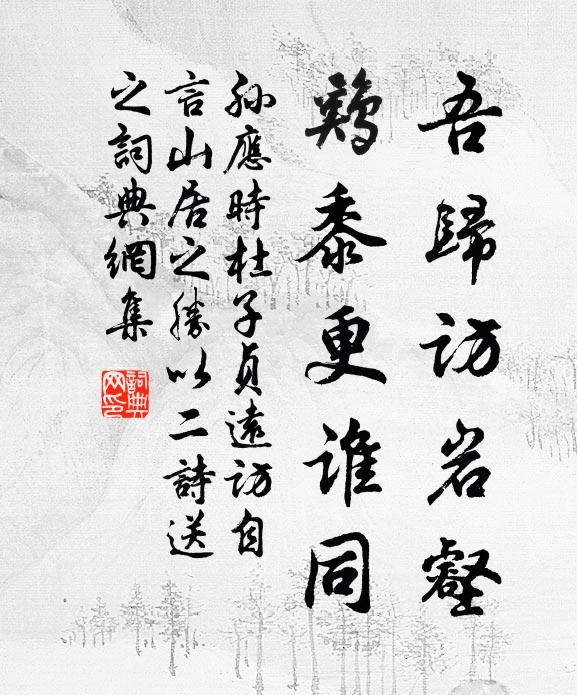 吾歸訪岩壑
鷄黍更誰同
孙應時杜子貞遠訪自
言山居之勝以二詩送
之詞典網集
詞典网印